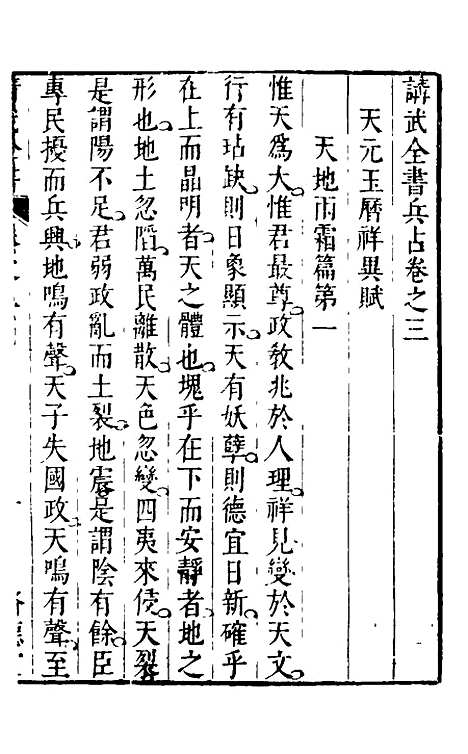 講武全書兵占卷之三
天元玉曆祥異賦
天地雨霜篇第一
惟天爲大惟君最尊政教兆於人理祥見變於天文
行有玷缺則日象顯示天有妖孽則德宜日新確乎
在上而晶明者天之體也塊乎在下而安靜者地之
形也地土忽陷萬民離散天色忽變四夷來侵天裂
是謂陽不足君弱政亂而土裂地震是謂陰有餘臣
專民擾而兵興地鳴有聲天子失國政天鳴有聲至